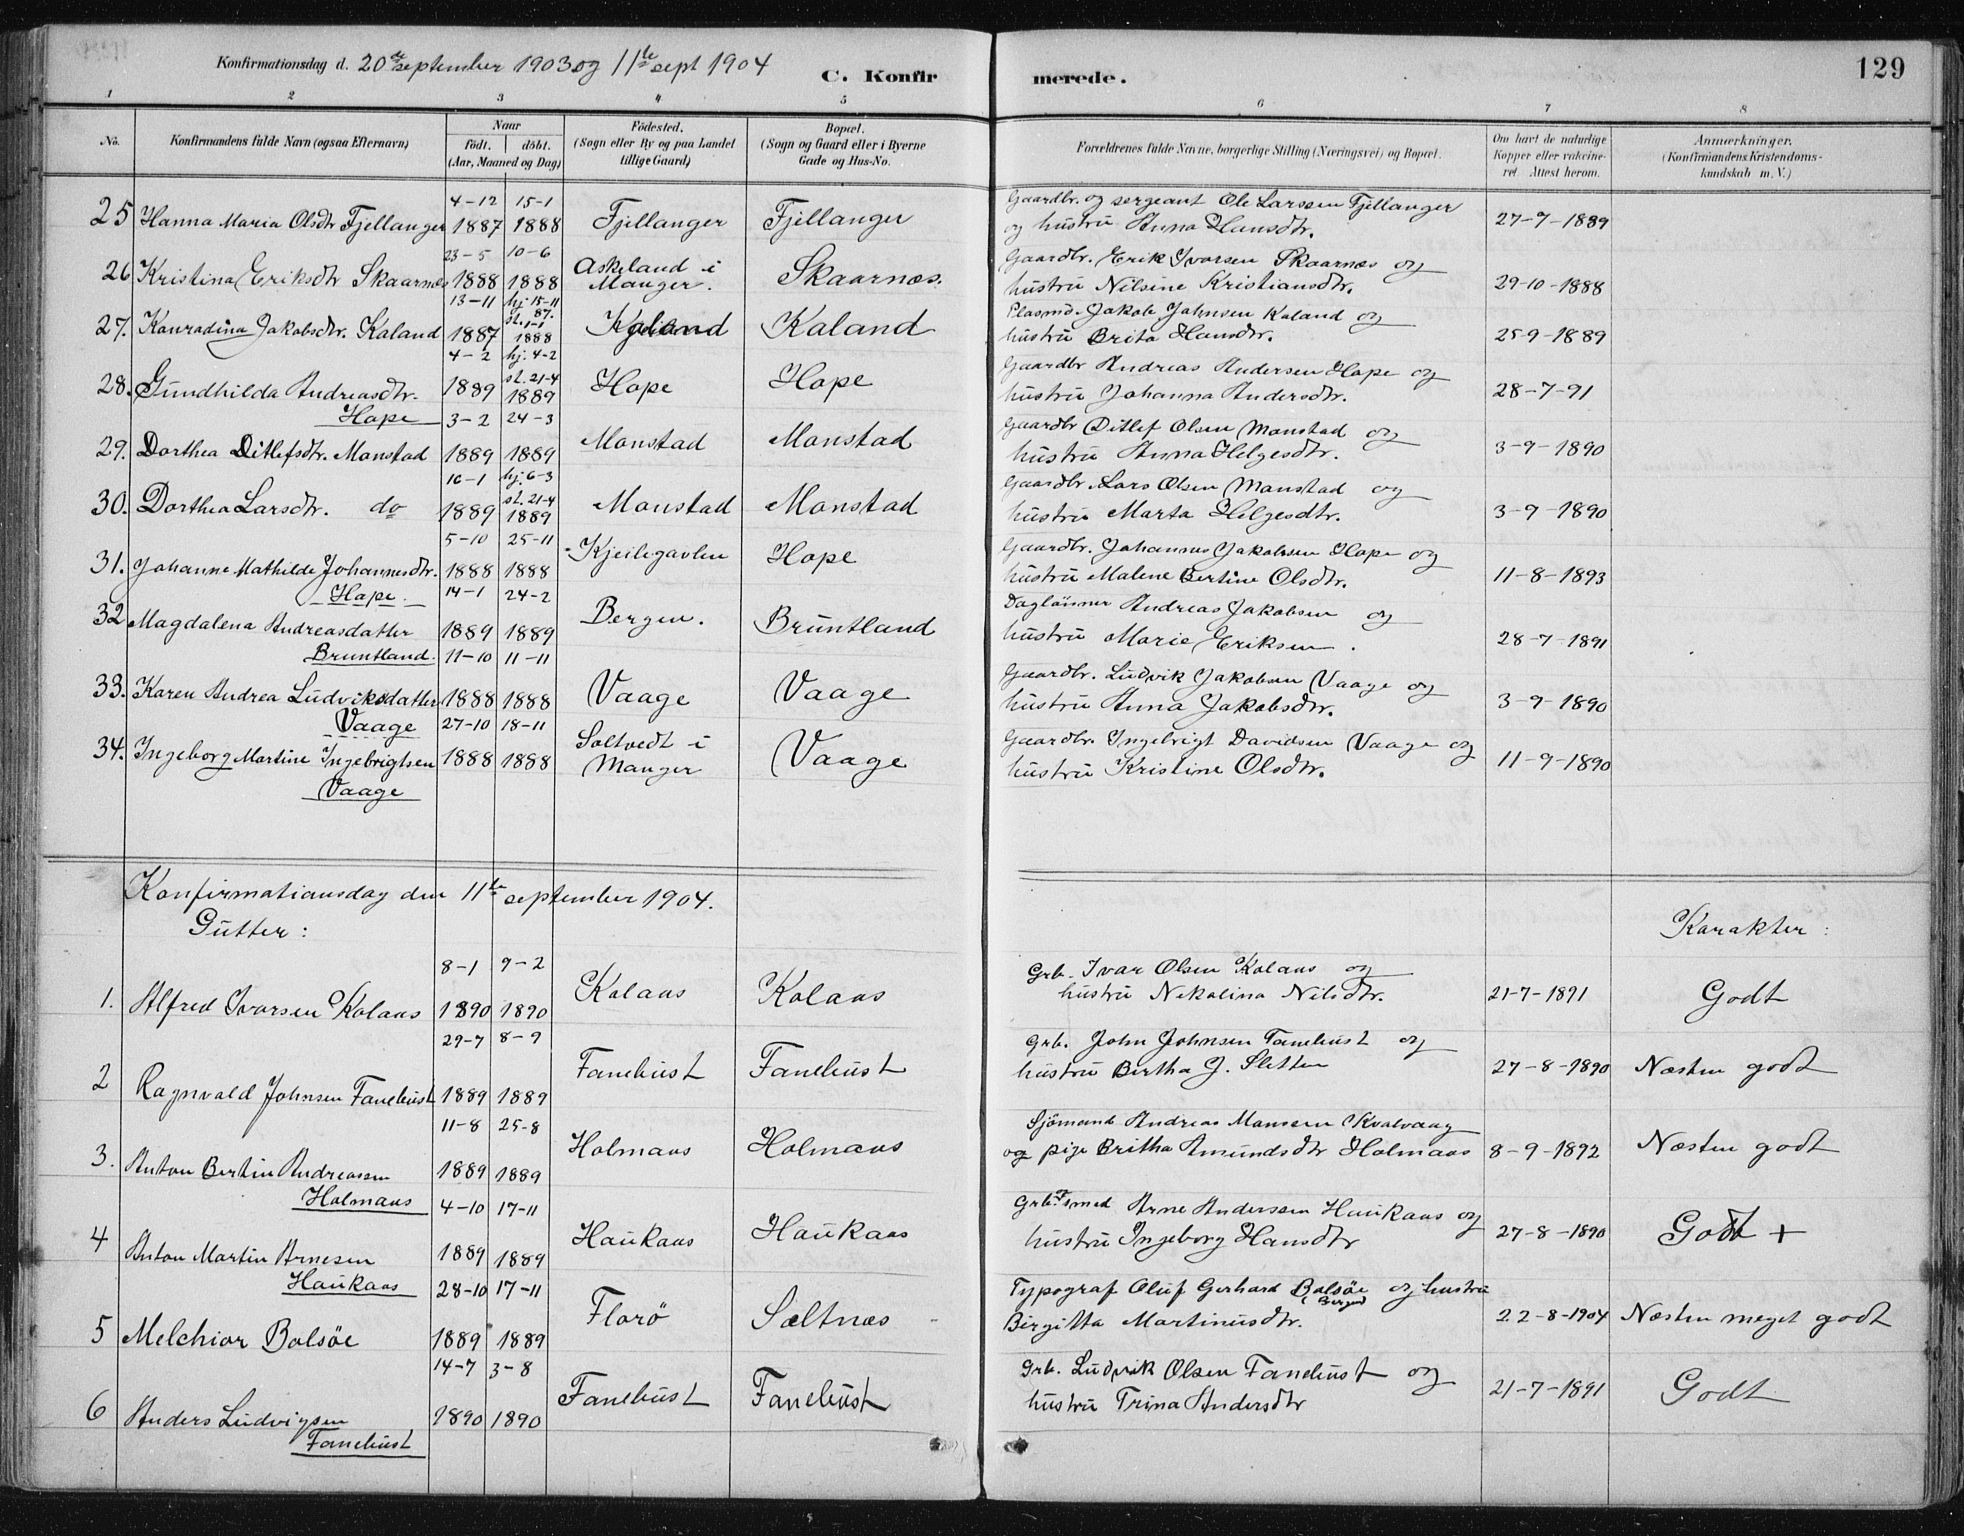 Konfirmationsdag d. 20de september 1903 og 11te sept 1904
C. Konfir merede.
129
1 2 3 4 5 6 7 8
No. Konfirmandens fulde Navn (ogsaa Efternavn) Naar født. døbt. (Aar, Maaned og Dag) Fødested. (Sogn eller By og paa Landet tillige Gaard) Bopæl. (Sogn og Gaard eller i Byerne Gade og Hus-No. Forældrenes fulde Navne, borgerlige Stilling (Næringsvei) og Bopæl. Om havt de naturlige Kopper eller vakcineret. Attest herom. Anmærkninger. (Konfirmandens Kristendomskundskab m. V.)
4-12 15-1 Gaardbr. og sergeant Ole Larssen Fjellanger
25 Hanna Maria Olsdtr Fjellanger 1887 1888 Fjellanger Fjellanger og hustru Anna Hansdtr. 27-7-1889
23-5 10-6 Askeland i Gaardbr. Erik Ivarsen Skaarnæs og
26 Kristina Eriksdtr Skaarnæs 1888 1888 Manger. Skaarnæs. hustru Nilsine Kristiansdtr. 29-10-1888
13-11 hj. 15-11 87. st. 1-1 Plasmd. Jakob Johnsen Kaland og
27. Konradina Jakobsdtr. Kaland 1887 1888 Kaland Kaland hustru Brita Hansdtr. 25-9-1889
4-2 hj. 4-2 st. 21-4 Gaardbr Andreas Andersen Hope og
28. Gundhilda Andreasdtr. 1889 1889 Hope Hope hustru Johanna Andersdtr. 28-7-91
Hope 3-2 24-3 Gaardbr Ditlef Olsen Monstad og
29. Dorthea Ditlefsdtr. Monstad 1889 1889 Monstad Monstad hustru Anna Helgesdtr. 3-9-1890
16-1 hj. 6-3 st. 21-4 Gaardbr. Lars Olsen Monstad og
30. Dorthea Larsdtr. do 1889 1889 Monstad Monstad hustru Marta Helgesdtr. 3-9-1890
5-10 25-11 Gaardbr. Johannes Jakobsen Hope og
31. Johanne Mathilde Johannesdtr. 1888 1888 Kjeilegavlen Hope hustru Malene Bertine Olsdtr. 11-8-1893
Hope. 14-1 24-2 Daglönner Andreas Jakobsen og
32 Magdalena Andreasdatter 1889 1889 Bergen. Bruntland hustru Marie Eriksen. 28-7-1891
Bruntland. 11-10 11-11 Gaardbr. Ludvik Jakobsen Vaage og
33. Karen Andrea Ludviksdatter 1888 1888 Vaage Vaage hustru Anna Jakobsdtr. 3-9-1890
Vaage 27-10 18-11 Soltvedt i Gaardbr. Ingebrigt Davidsen Vaage og
34. Ingeborg Martine Ingebrigtsen 1888 1888 Manger Vaage hustru Kristine Olsdtr. 11-9-1890
Vaage
Konfirmationsdag den 11te september 1904.
Gutter: Karakter:
8-1 9-2 Grb. Ivar Olsen Kolaas og
1. Alfred Ivarsen Kolaas 1890 1890 Kolaas Kolaas hustru Nekolina Nilsdtr. 21-7-1891 Godt
29-7 8-9 Grb. John Johnsen Fanebust og
2 Ragnvald Johnsen Fanebust 1889 1889 Fanebust Fanebust hustru Bertha J. Sletten 27-8-1890 Næsten godt
11-8 25-8 Sjömand Andreas Monsen Kvalvaag
3. Anton Bertin Andreassen 1889 1889 Holmaas Holmaas og pige Britha Amundsdtr Holmaas 8-9-1892 Næsten godt
Holmaas 4-10 17-11 Grb. & smed Arne Anderssen Haukaas og
4 Anton Martin Arnesen 1889 1889 Haukaas Haukaas hustru Ingeborg Hansdtr 27-8-1890 Godt +
Haukaas 28-10 17-11 Typograf Oluf Gerhard Bolsöe (Bergen) og hustru
5 Melchior Bolsöe 1889 1889 Florö Sæltnæs Birgitta Martinusdtr. 22-8-1904 Næsten meget godt
14-7 3-8 Grb. Ludvik Olsen Fanebust og
6 Anders Ludvigsen 1890 1890 Fanebust Fanebust hustru Trina Andersdtr 21-7-1891 Godt
Fanebust